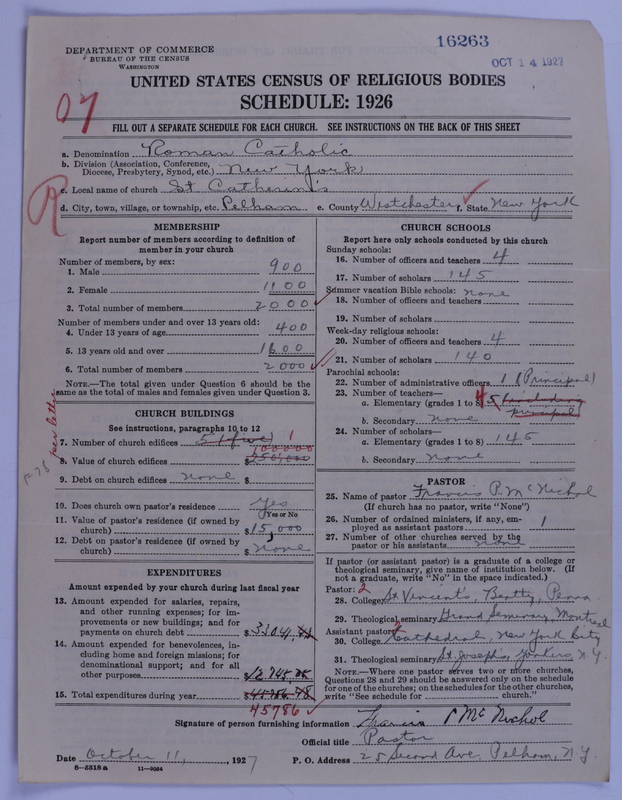 16263
OCT 14 1927
DEPARTMENT OF COMMERCE
BUREAU OF THE CENSUS
WASHINGTON
UNITED STATES CENSUS OF RELIGIOUS BODIES
SCHEDULE: 1926
07
FILL OUT A SEPARATE SCHEDULE FOR EACH CHURCH. SEE INSTRUCTIONS ON THE BACK OF THIS SHEET
a. Denomination Roman Catholic
b. Division (Association, Conference, Diocese, Presbytery, Synod, etc.) New York
R
c. Local name of church St Catherine's
d. City, town, village, or township, etc. Pelham e. County Westchester f. State New York
MEMBERSHIP
Report number of members according to definition of
member in your church
Number of members, by sex:
1. Male 900
2. Female 1100
3. Total number of members 2000
Number of members under and over 13 years old:
4. Under 13 years of age 400
5. 13 years old and over 1600
6. Total number of members 2000
NOTE.—The total given under Question 6 should be the
same as the total of males and females given under Question 3.
CHURCH BUILDINGS
See instructions, paragraphs 10 to 12
7. Number of church edifices 5 (five) 1
8. Value of church edifices $250,000 100000
per letter
9. Debt on church edifices none $
10. Does church own pastor's residence Yes
Yes or No
11. Value of pastor's residence (if owned by
church) $15,000
12. Debt on pastor's residence (if owned by
church) $none
EXPENDITURES
Amount expended by your church during last fiscal year
13. Amount expended for salaries, repairs,
and other running expenses; for im-
provements or new buildings; and for
payments on church debt $33041.
14. Amount expended for benevolences, in-
cluding home and foreign missions; for
denominational support; and for all
other purposes 12,745.
15. Total expenditures during year $45786.78
45786
CHURCH SCHOOLS
Report here only schools conducted by this church
Sunday schools:
16. Number of officers and teachers 4
17. Number of scholars 145
Summer vacation Bible schools: none
18. Number of officers and teachers
19. Number of scholars
Week-day religious schools:
20. Number of officers and teachers 4
21. Number of scholars 140
Parochial schools:
22. Number of administrative officers 1 (Principal)
23. Number of teachers—
a. Elementary (grades 1 to 8) 4 5 (including
principal)
b. Secondary none
24. Number of scholars—
a. Elementary (grades 1 to 8) 145
b. Secondary none
PASTOR
25. Name of pastor Francis P. McNichol
(If church has no pastor, write "None")
26. Number of ordained ministers, if any, em-
ployed as assistant pastors 1
27. Number of other churches served by the
pastor or his assistants none
If pastor (or assistant pastor) is a graduate of a college or
theological seminary, give name of institution below. (If
not a graduate, write "No" in the space indicated.)
Pastor: 2
28. College St Vincent's, Beatty, Penna
29. Theological seminary Grand Seminary, Montreal
Assistant pastor: 2
30. College Cathedral, New York City
31. Theological seminary St Josephs Yonkers N.Y.
NOTE.—Where one pastor serves two or more churches,
Questions 28 and 29 should be answered only on the schedule
for one of the churches; on the schedules for the other churches,
write "See schedule for church."
Signature of person furnishing information Francis P McNichol
Official title Pastor
Date October 11, 1927 P. O. Address 25 Second Ave, Pelham, N.Y.
8—5518a 11—9034